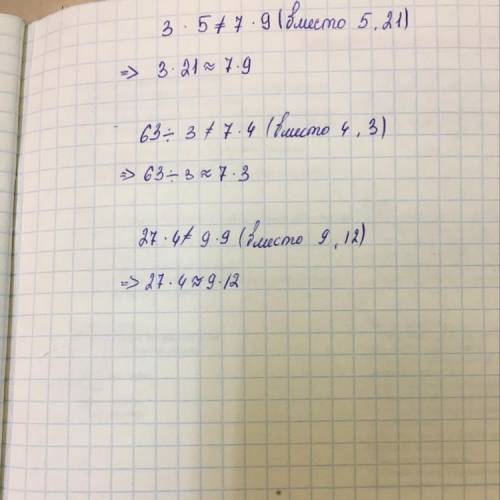 3 · 5 ≠ 7 · 9 (вместо 5, 21)
=> 3 · 21 ≈ 7 · 9
63 ÷ 3 ≠ 7 · 4 (вместо 4, 3)
=> 63 ÷ 3 ≈ 7 · 3
27 · 4 ≠ 9 · 9 (вместо 9, 12)
=> 27 · 4 ≈ 9 · 12